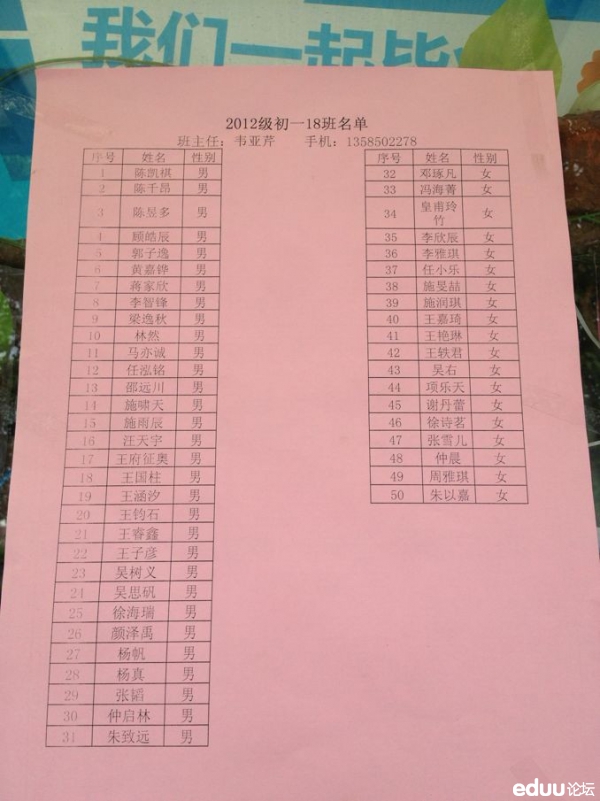 我们一起毕
2012级初一18班名单
班主任：韦亚芹 手机：1358502278
序号 姓名 性别
1 陈凯棋 男
2 陈千昂 男
3 陈昱多 男
4 顾皓辰 男
5 郭子逸 男
6 黄嘉铧 男
7 蒋家欣 男
8 李智锋 男
9 梁逸秋 男
10 林然 男
11 马亦诚 男
12 任泓铭 男
13 邵远川 男
14 施啸天 男
15 施雨辰 男
16 汪天宇 男
17 王府征奥 男
18 王国柱 男
19 王涵汐 男
20 王钧石 男
21 王睿鑫 男
22 王子彦 男
23 吴树义 男
24 吴思矾 男
25 徐海瑞 男
26 颜泽禹 男
27 杨帆 男
28 杨真 男
29 张韬 男
30 仲启林 男
31 朱致远 男
序号 姓名 性别
32 邓琢凡 女
33 冯海菁 女
34 皇甫玲竹 女
35 李欣辰 女
36 李雅琪 女
37 任小乐 女
38 施旻喆 女
39 施润琪 女
40 王嘉琦 女
41 王艳琳 女
42 王轶君 女
43 吴右 女
44 项乐天 女
45 谢丹蕾 女
46 徐诗茗 女
47 张雪儿 女
48 仲晨 女
49 周雅琪 女
50 朱以嘉 女
eduu论坛